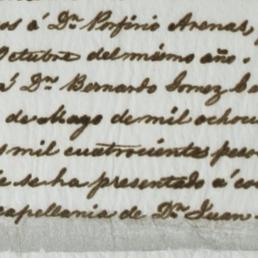 os á Dn Porfirio Arenas,
Octubre del mismo año.
á Dn Bernardo Gomez
de Mayo de mil ochoci
s mil cuatrocientos peso
se ha presentado á co
capellania de Dn Juan